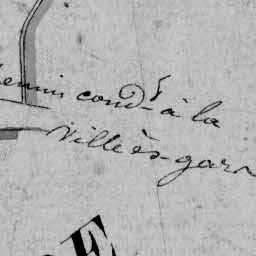 hemin cond.^r à la
Ville ès-garn
E